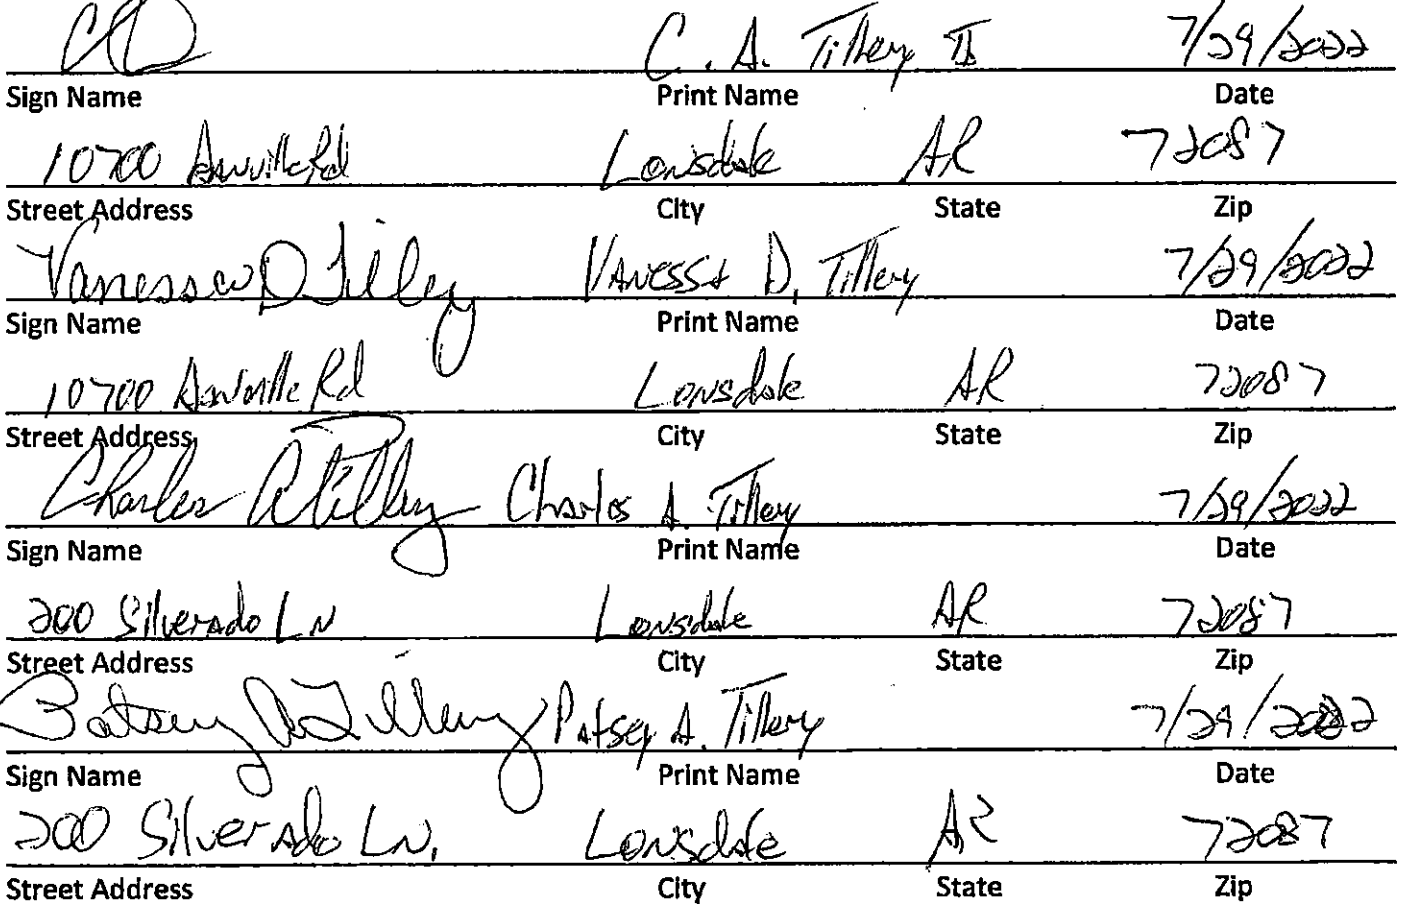 C. A. Tillery II 7/29/2022
Sign Name Print Name Date
10700 Rd Lonsdale AR 72087
Street Address City State Zip
Vanessa D Tillery Vanessa D. Tillery 7/29/2022
Sign Name Print Name Date
10700 Rd Lonsdale AR 72087
Street Address City State Zip
Charles A Tillery Charles A. Tillery 7/29/2022
Sign Name Print Name Date
200 Silverado LN Lonsdale AR 72087
Street Address City State Zip
Patsey A Tillery Patsey A. Tillery 7/29/2022
Sign Name Print Name Date
200 Silverado LN. Lonsdale AR 72087
Street Address City State Zip